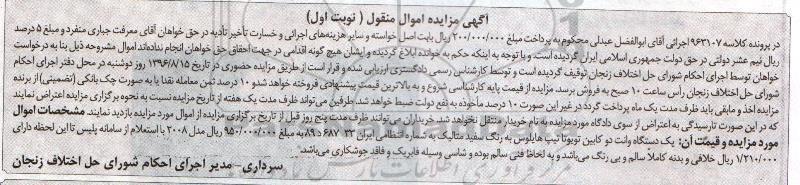 آگهی مزایده اموال منقول ( نوبت اول)
در پرونده کلاسه ۹۶۳۱۰۷ اجرائی آقای ابوالفضل عبدلی محکوم به پرداخت مبلغ ۲۰۰/۰۰۰/۰۰۰ ریال بابت اصل خواسته و سایر هزینه‌های اجرائی و خسارت تأخیر تأدیه در حق خواهان آقای معرفت جباری منفرد و مبلغ ۵ درصد
ریال نیم عشر دولتی در حق دولت جمهوری اسلامی ایران گردیده است. و با توجه به اینکه حکم به خوانده ابلاغ گردیده و ایشان هیچ گونه اقدامی در جهت احقاق حق خواهان انجام نداده‌اند اموال مشروحه ذیل بنا به درخواست
خواهان توسط اجرای احکام شورای حل اختلاف زنجان توقیف گردیده است و توسط کارشناس رسمی دادگستری ارزیابی شده و قرار است از طریق مزایده حضوری در تاریخ ۱۳۹۶/۸/۱۵ روز دوشنبه در محل دفتر اجرای احکام
شورای حل اختلاف زنجان رأس ساعت ۱۰ صبح به فروش برسد. مزایده از قیمت پایه کارشناسی شروع و به بالاترین قیمت پیشنهادی فروخته خواهد شد و ۱۰ درصد ثمن معامله نقدا یا به صورت چک بانکی (تضمینی) از برنده
مزایده اخذ و مابقی باید ظرف مدت یک ماه پرداخت گردد در غیر این صورت ۱۰ درصد مأخوذه به نفع دولت ضبط خواهد شد. طرفین می‌تواند ظرف مدت یک هفته از تاریخ مزایده نسبت به نحوه برگزاری مزایده اعتراض نمایند
که در این صورت تا رسیدگی به اعتراض از سوی دادگاه مورد مزایده به نام خریدار منتقل نخواهد شد. خریداران می‌توانند ظرف مدت پنج روز قبل از تاریخ برگزاری مزایده از اموال مورد مزایده بازدید نمایند. مشخصات اموال
مورد مزایده و قیمت آن: یک دستگاه وانت دو کابین تویوتا تیپ هایلوس به رنگ سفید متالیک به شماره انتظامی ایران ۳۳ ۶۸۷ به مبلغ ۹۵۰/۰۰۰/۰۰۰ ریال مدل ۲۰۰۸ با استعلام از سامانه پلیس تا این لحظه دارای
۱/۲۱۰/۰۰۰ ریال خلافی و بدنه کاملاً سالم و بی رنگ می‌باشد و به لحاظ فنی سالم بوده و شاسی وسیله فابریک و فاقد جوشکاری می‌باشد"
سرداری - مدیر اجرای احکام شورای حل اختلاف زنجان